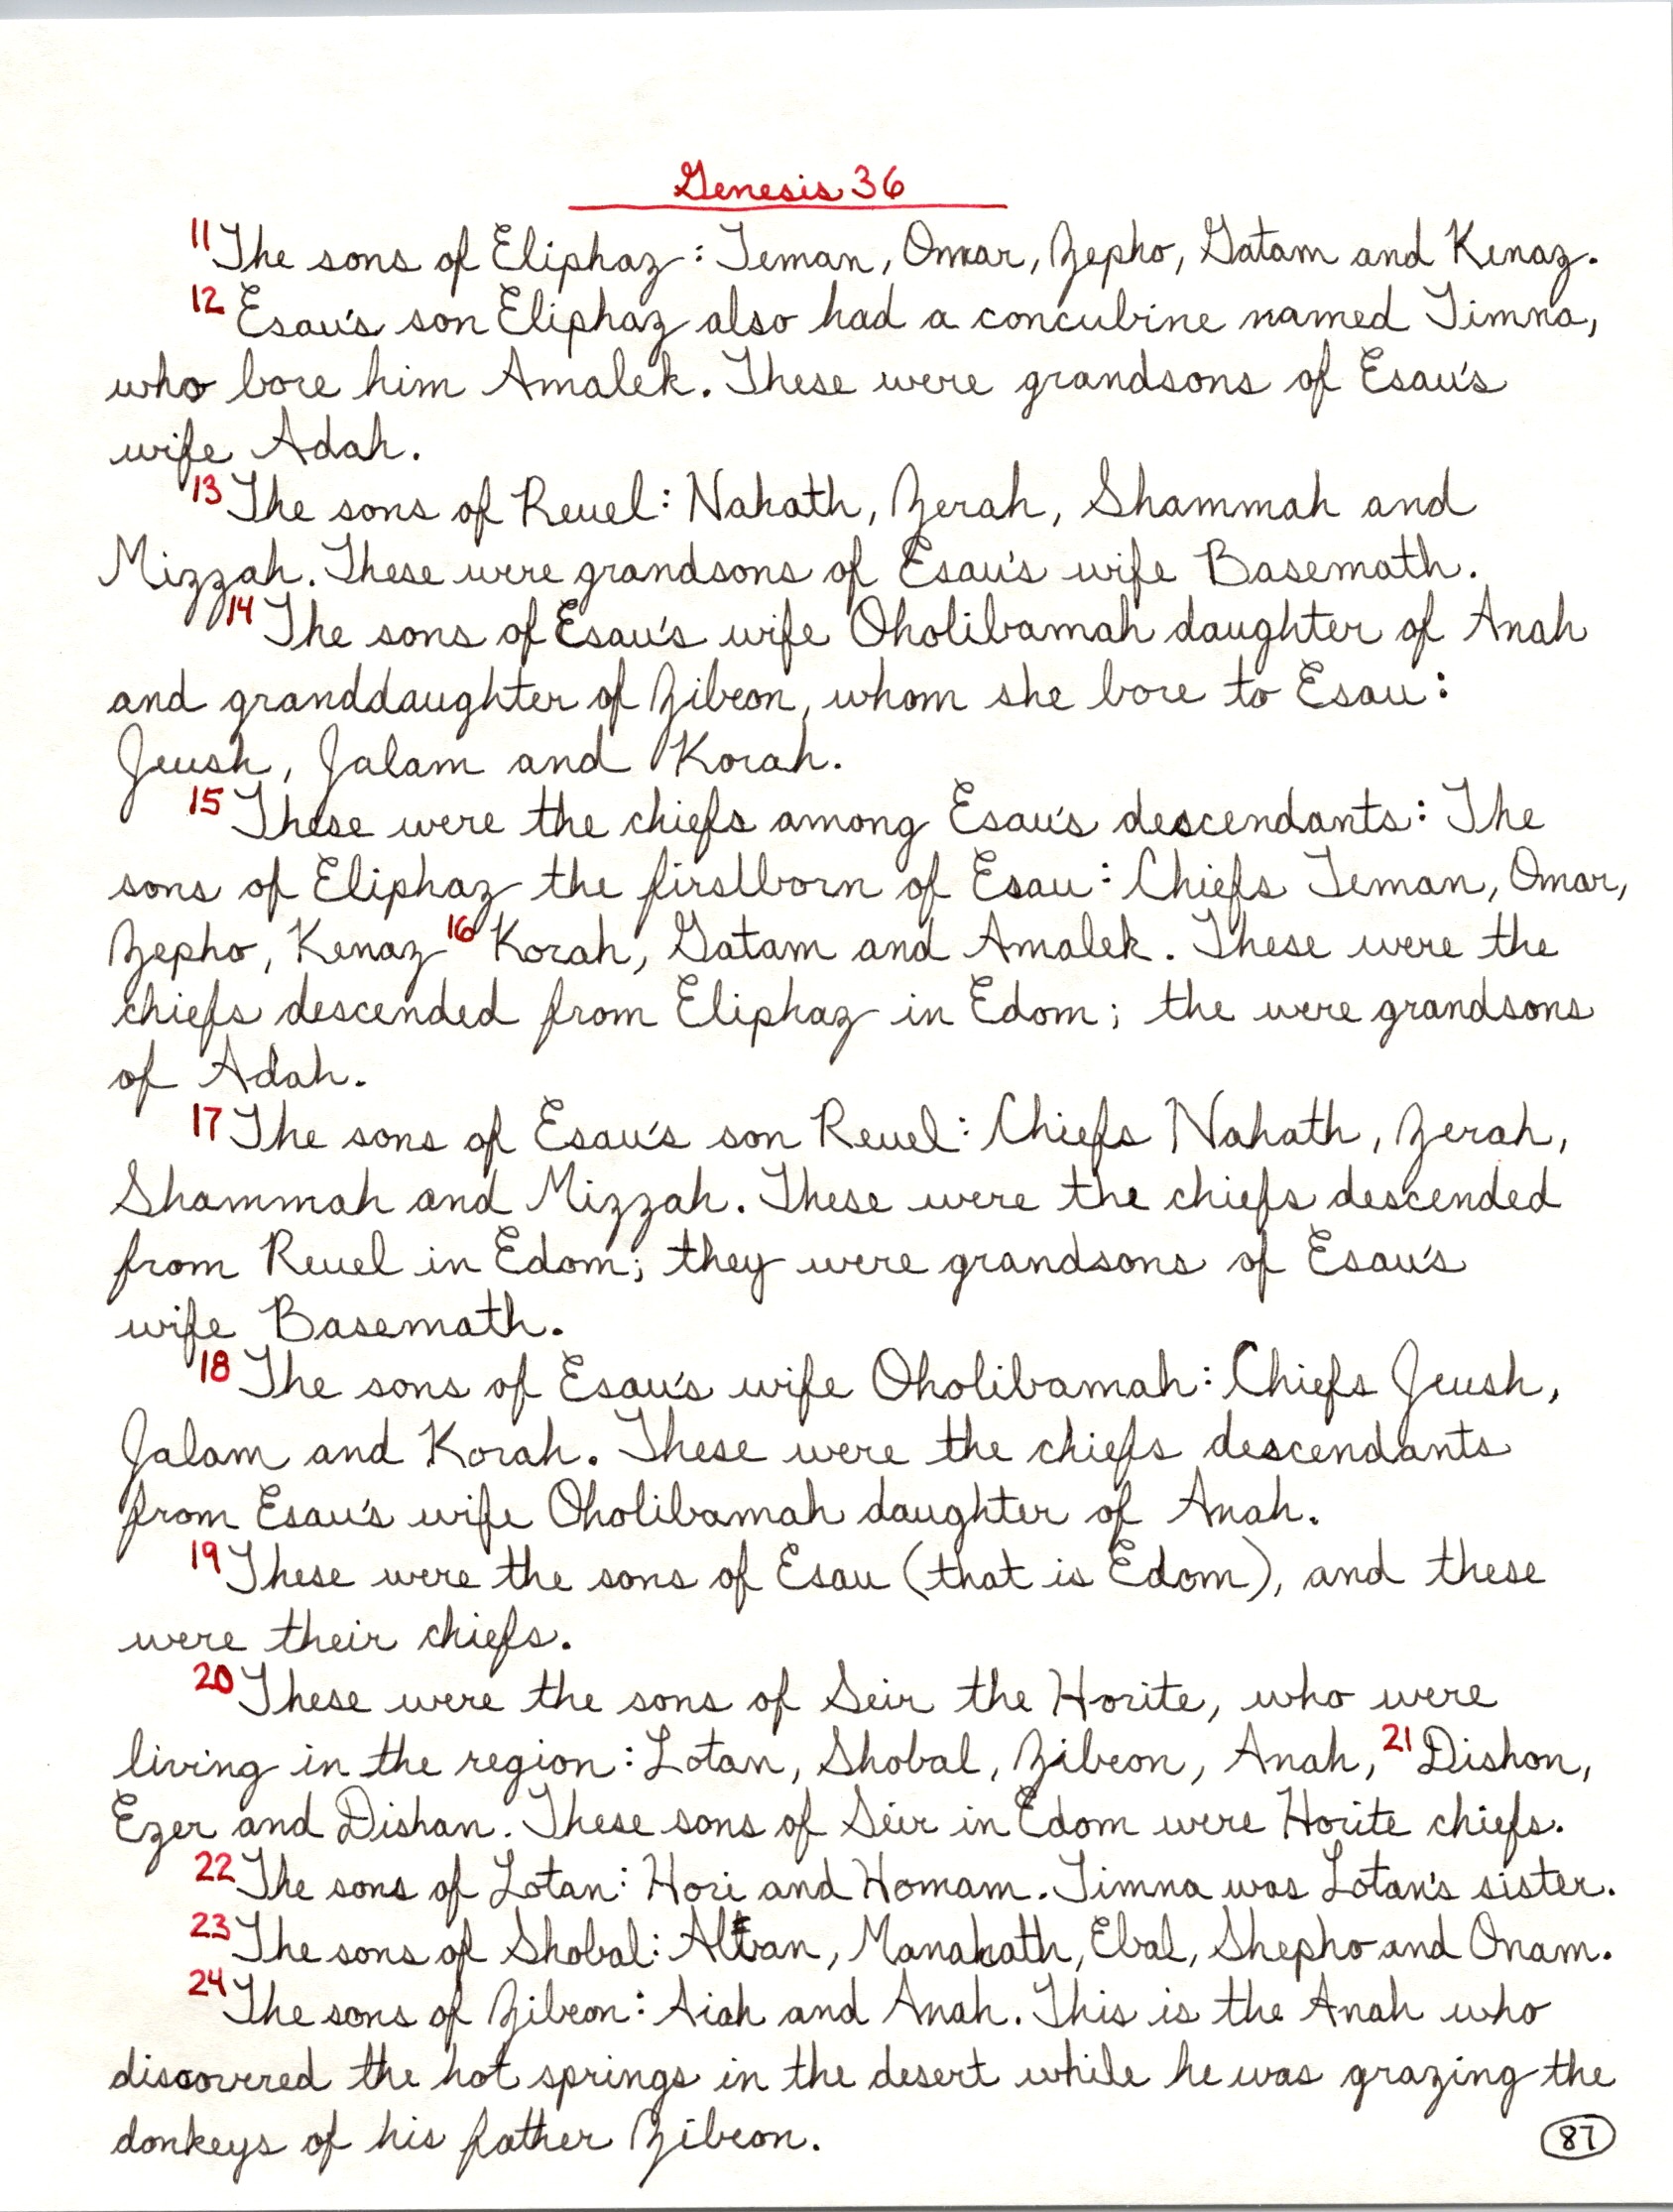 Genesis 36
11 The sons of Eliphaz: Teman, Omar, Zepho, Gatam and Kenaz.
12 Esau's son Eliphaz also had a concubine named Timna,
who bore him Amalek. These were grandsons of Esau's
wife Adah.
13 The sons of Reuel: Nahath, Zerah, Shammah and
Mizzah. These were grandsons of Esau's wife Basemath.
14 The sons of Esau's wife Oholibamah daughter of Anah
and granddaughter of Zibeon, whom she bore to Esau:
Jeush, Jalam and Korah.
15 These were the chiefs among Esau's descendants: The
sons of Eliphaz the firstborn of Esau: Chiefs Teman, Omar,
Zepho, Kenaz 16 Korah, Gatam and Amalek. These were the
chiefs descended from Eliphaz in Edom; the were grandsons
of Adah.
17 The sons of Esau's son Reuel: Chiefs Nahath, Zerah,
Shammah and Mizzah. These were the chiefs descended
from Reuel in Edom; they were grandsons of Esau's
wife Basemath.
18 The sons of Esau's wife Oholibamah: Chiefs Jeush,
Jalam and Korah. These were the chiefs descendants
from Esau's wife Oholibamah daughter of Anah.
19 These were the sons of Esau (that is Edom), and these
were their chiefs.
20 These were the sons of Seir the Horite, who were
living in the region: Lotan, Shobal, Zibeon, Anah, 21 Dishon,
Ezer and Dishan. These sons of Seir in Edom were Horite chiefs.
22 The sons of Lotan: Hori and Homam. Timna was Lotan's sister.
23 The sons of Shobal: Manahath, Ebal, Shepho and Onam.
24 The sons of Zibeon: Aiah and Anah. This is the Anah who
discovered the hot springs in the desert while he was grazing the
donkeys of his father Zibeon.
87